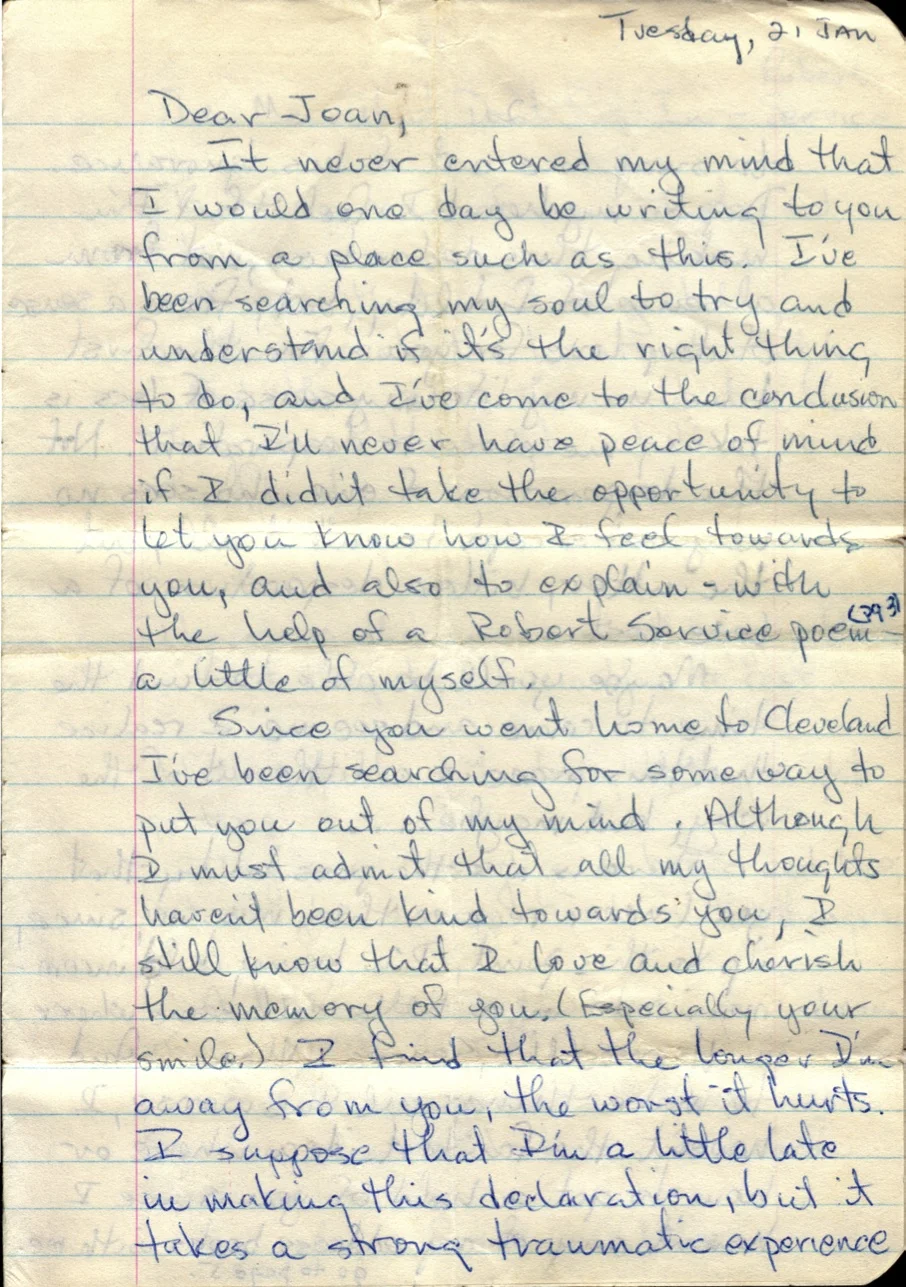 Tuesday, 21 JAN
Dear Joan,
It never entered my mind that
I would one day be writing to you
from a place such as this. I've
been searching my soul to try and
understand if it's the right thing
to do, and I've come to the conclusion
that I'll never have peace of mind
if I didn't take the opportunity to
let you know how I feel towards
you, and also to explain - with
the help of a Robert Service poem -
a little of myself.
Since you went home to Cleveland
I've been searching for some way to
put you out of my mind. Although
I must admit that all my thoughts
haven't been kind towards you, I
still know that I love and cherish
the memory of you. (Especially your
smile.) I find that the longer I'm
away from you, the worst it hurts.
I suppose that I'm a little late
in making this declaration, but it
takes a strong traumatic experience